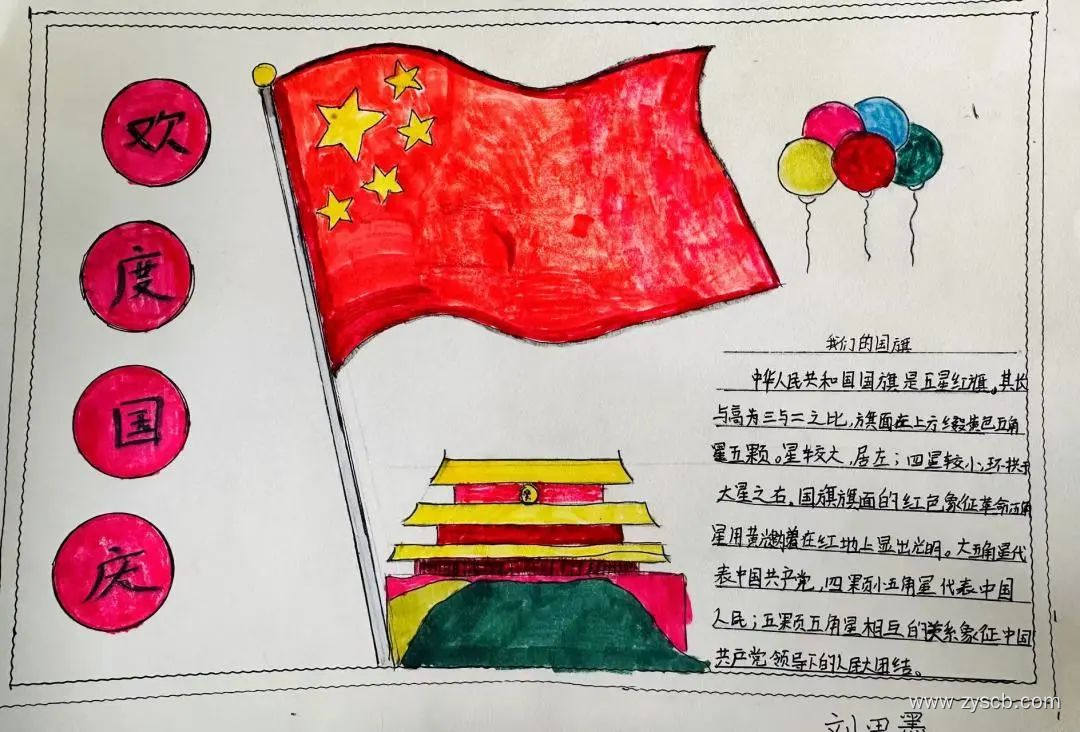 欢
度
国
庆
我们的国旗
中华人民共和国国旗是五星红旗。其长
与高为三与二之比,旗面左上方缀黄色五角
星五颗。一星较大,居左;四星较小,环拱于
大星之右。国旗旗面的红色象征革命,五角
星用黄
在红地上显出光明。大五角星代
表中国共产党,四颗小五角星代表中国
人民;五颗五角星相互的联系象征中国
共产党领导下的人民大团结。
www.zyscb.com